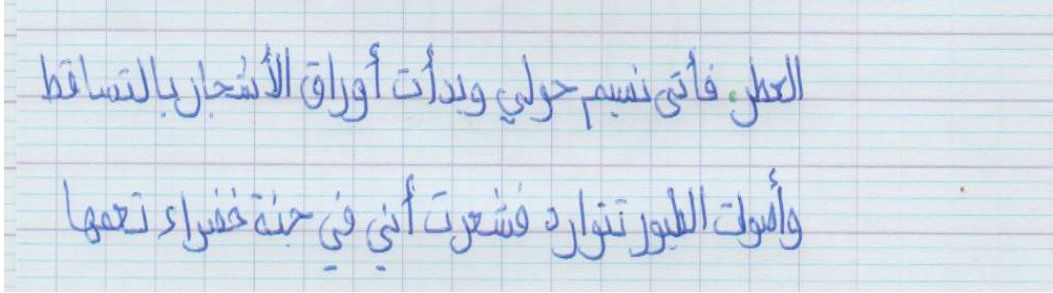 العطر. فأتى نسيم حولي وبدأت أوراق الأشجار بالتساقط
وأصوات الطيور تتوارد فشعرت أني في جنة خضراء تعمها